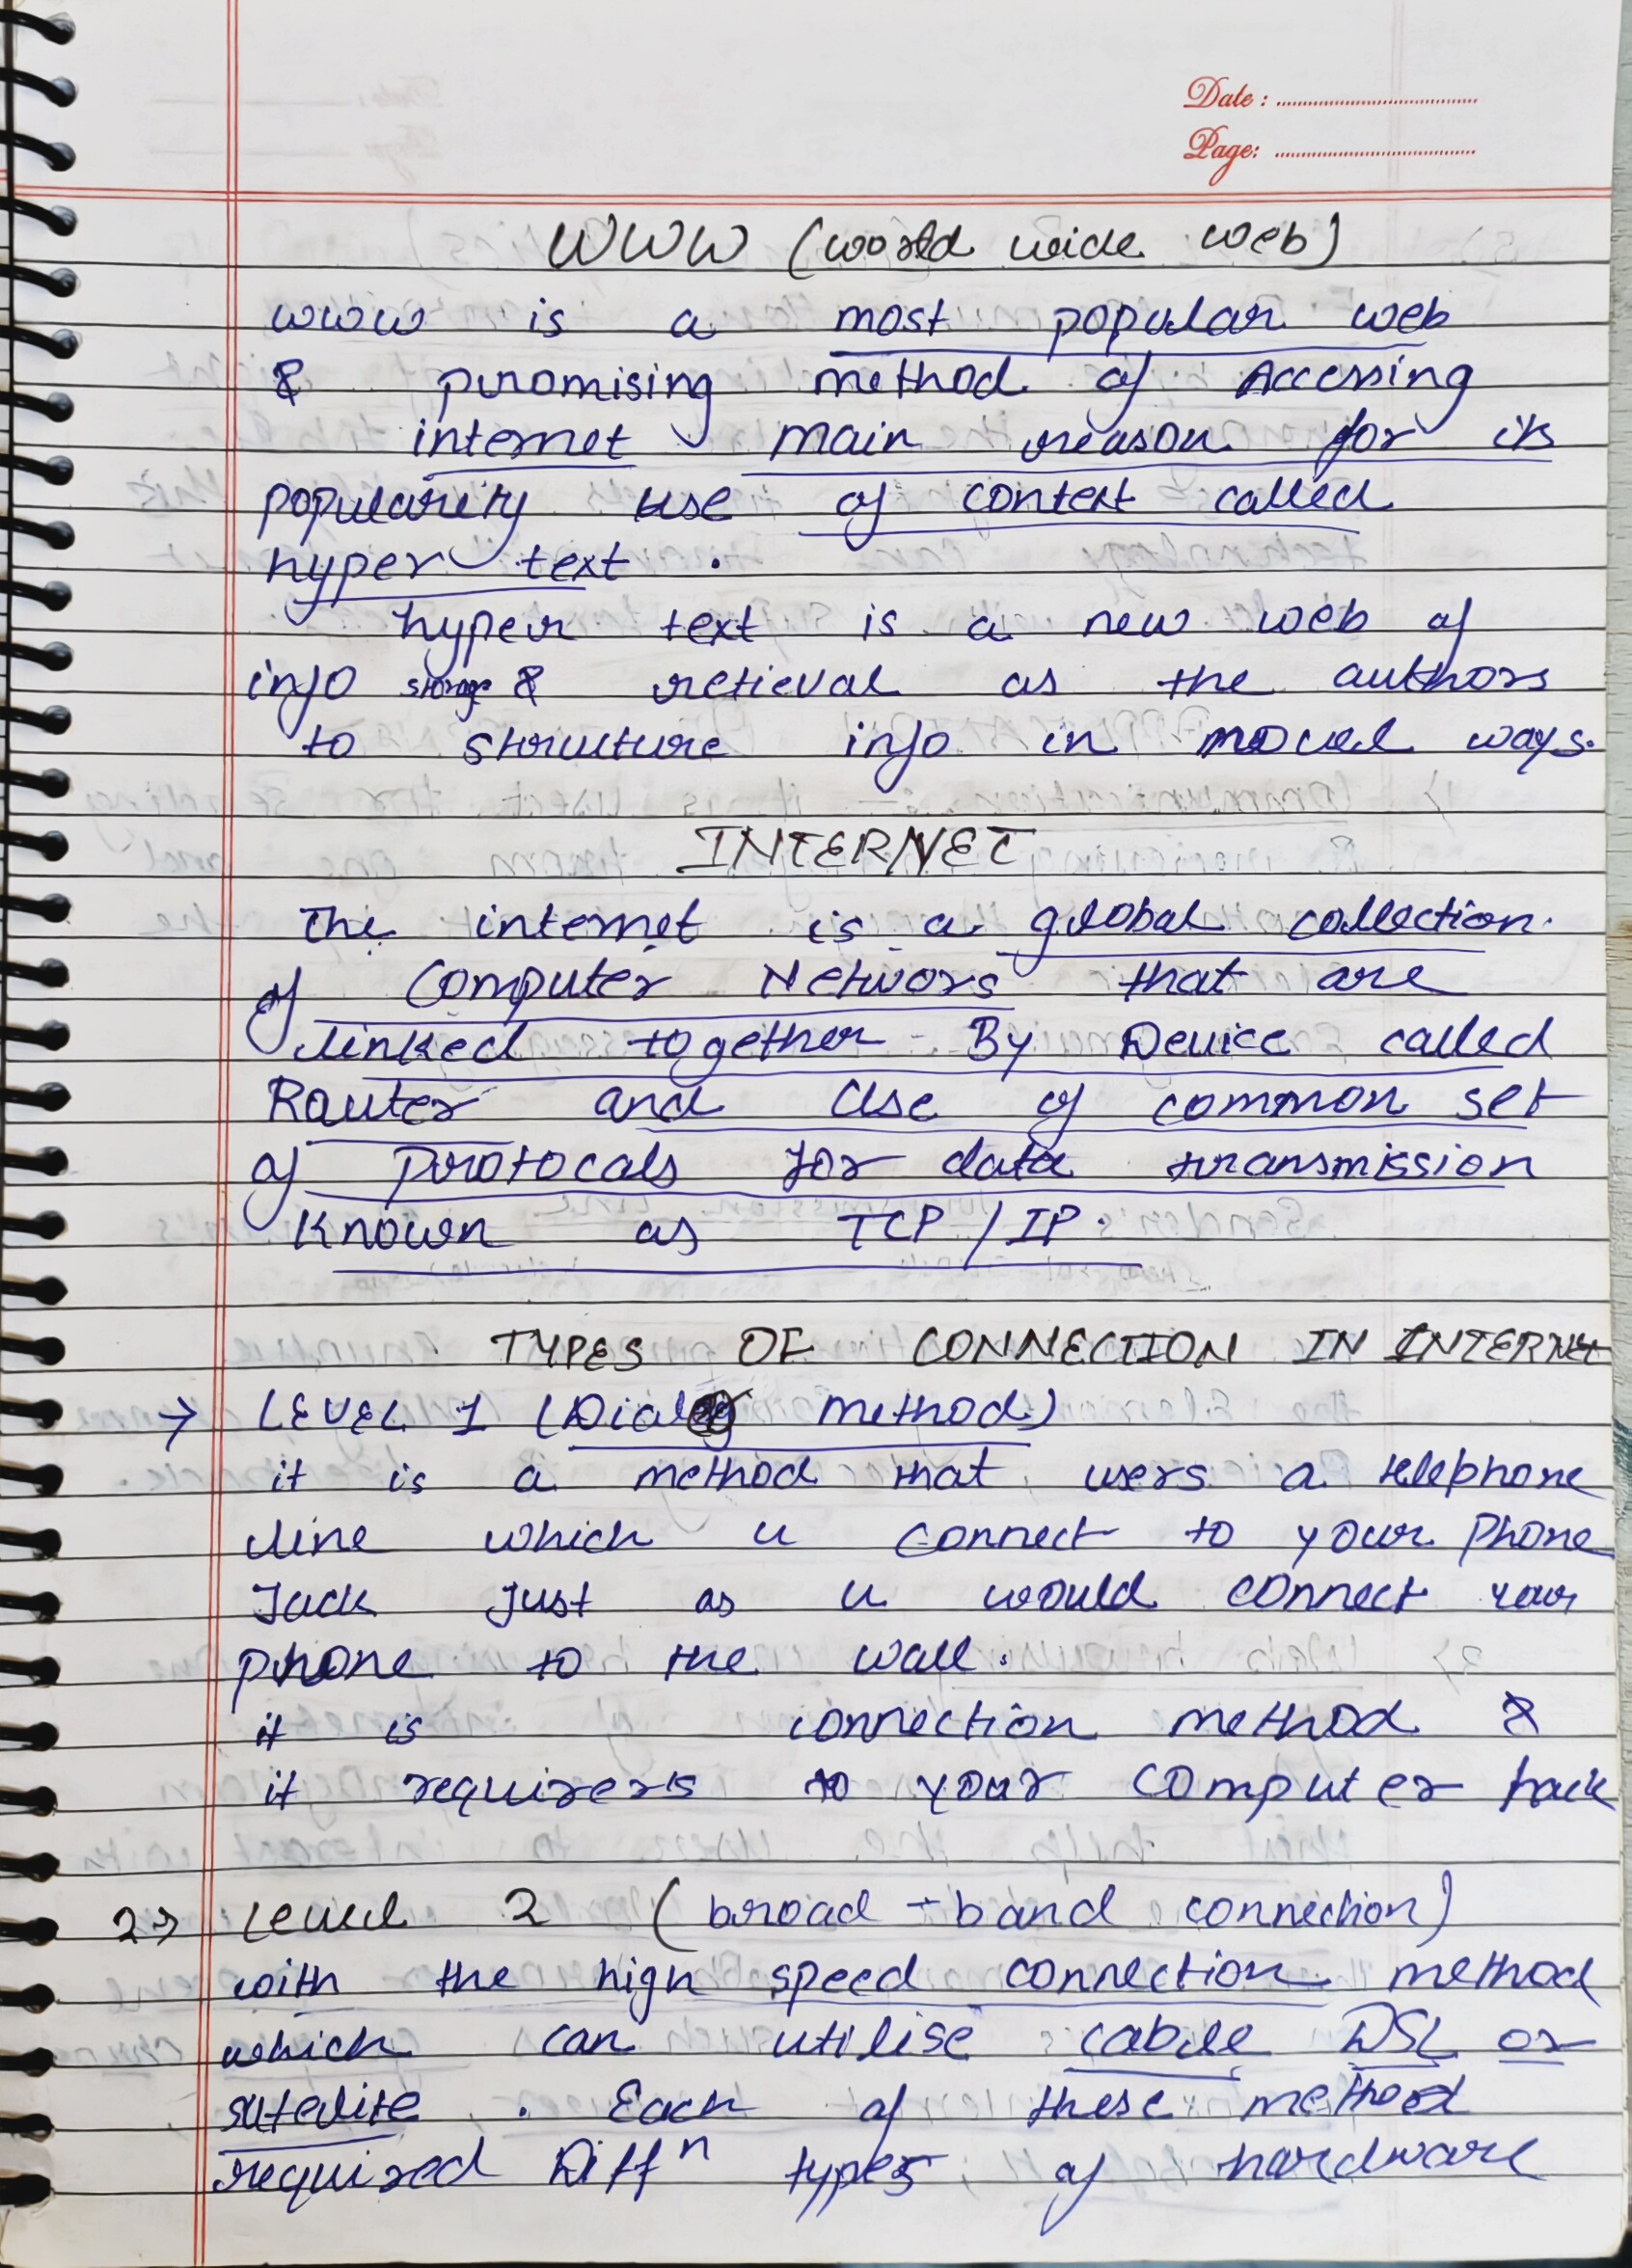 Date :
Page:
WWW (world wide web)
www is a most popular web
& promising method of Accessing
internet main reason for its
popularity use of context called
hyper text .
hyper text is a new web of
info storage & retieval as the authors
to structure info in ways.
INTERNET
The internet is a global collection.
of Computer Networs that are
linked together By Device called
Router and Use of common set
of protocals for data transmission
known as TCP / IP.
TYPES OF CONNECTION IN INTERNET
→ LEVEL 1 (Dial method)
it is a method that users a telephone
line which u connect to your phone
Jack just as u would connect your
phone to the wall.
it is connection method &
it requirers to your computer
2→ Level 2 (broad - band connection)
with the high speed connection method
which can utilise cable DSL or
satelite . Each of these method
required Diffⁿ types of hardware